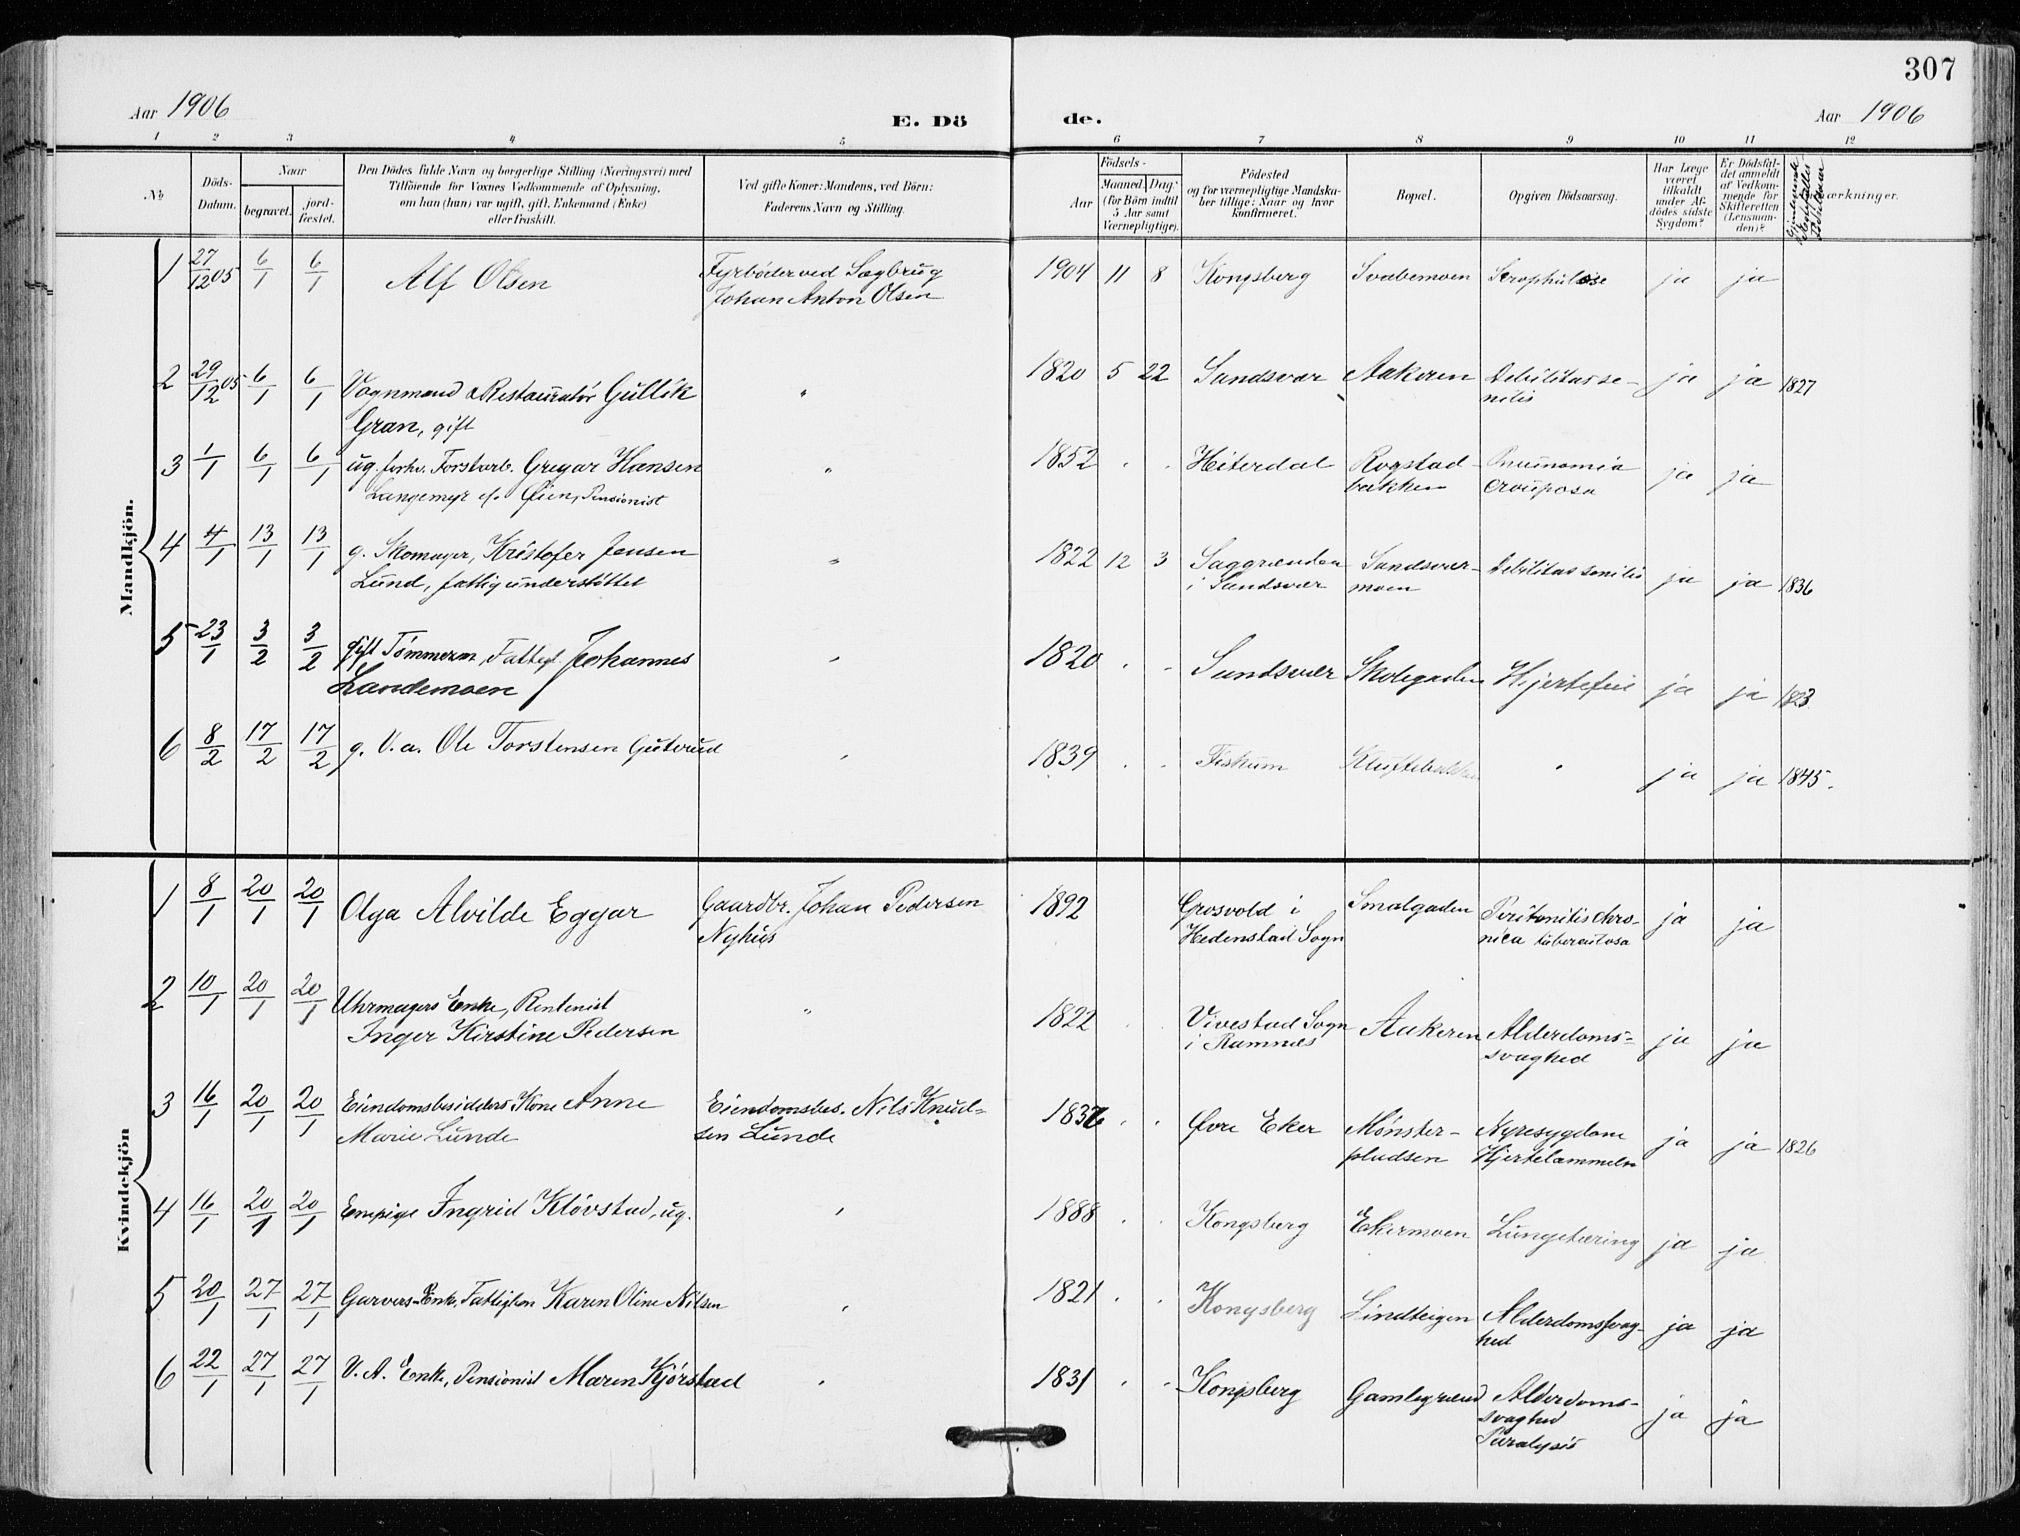 307
Aar 1906
E. Dö
de.
Aar 1906
1 2 3 4 5 6 7 8 9 10 11 12
No
Döds-
Datum.
Naar
begravet.
jord-
fæstet.
Den Dödes fulde Navn og borgerlige Stilling (Næringsvei) med
Tilföiende for Voxnes Vedkommende af Oplysning,
om han (hun) var ugift, gift, Enkemand (Enke)
eller fraskilt.
Ved gifte Koner: Mandens, ved Börn:
Faderens Navn og Stilling.
Födsels-
Aar
Maaned. Dag.
(for Börn indtil
5 Aar samt
Værnepligtige).
Födested
og for værnepligtige Mandska-
ber tillige: Naar og hvor
konfirmeret.
Bopæl.
Opgiven Dödsaarsag.
Har Læge
været
tilkaldt
under Af-
dödes sidste
Sygdom?
Er Dödsfal-
det anmeldt
af Vedkom-
mende for
Skifteretten
(Lensman-
den)?
ærkninger.
Mandkjön.
1 27/12 05 6/1 6/1 Alf Olsen Fyrbøder ved Sagbrug
Johan Anton Olsen 1904 11 8 Kongsberg Svabemoen Scrophulose ja ja
2 29/12 05 6/1 6/1 Vognmand & Restauratør Gullik
Gran, gift " 1820 5 22 Sandsvær Aakeren Debilitas se-
nilis ja ja 1827
3 1/1 6/1 6/1 ug. forhv. Forstarb. Gregar Hansen
Langemyr e/. Øien, Pensionist " 1852 . . Hiterdal Rogstad-
bakken Pneunomia
Crouposa ja ja
4 4/1 13/1 13/1 g. Skomager, Kristofer Jensen
Lund, fattigunderstøttet " 1822 12 3 Saggrenden
i Sandsvær Sandsvær-
moen Debilitas senilis ja ja 1836
5 23/1 3/2 3/2 gift Tømmerm, Fattigl. Johannes
Landemoen " 1820 . . Sandsvær Skolegaden Hjertefeil ja ja 1823
6 8/2 17/2 17/2 g. V. a. Ole Torstensen Guterud " 1839 . . Fiskum Kluftebakken " ja ja 1845.
Kvindekjön
1 8/1 20/1 20/1 Olga Alvilde Eggar Gaardbr. Johan Pedersen
Nyhus 1892 Grosvold i
Hedenstad Sogn Smalgaden Peritonitis chro-
nica tuberculosa ja ja
2 10/1 20/1 20/1 Uhrmagers Enke, Rentenist
Inger Kirstine Pedersen " 1822 . . Vivestad Sogn
i Ramnes Aakeren Alderdoms-
svaghed ja ja
3 16/1 20/1 20/1 Eiendomsbesidders Kone Anne
Marie Lunde Eiendomsbes. Nils Knud-
sen Lunde 1836 . . Øvre Eker Mønster-
pladsen Nyresygdom
Hjertelammelse ja ja 1826
4 16/1 20/1 20/1 Enepige Ingrid Kløvstad, ug. " 1888 . . Kongsberg Ekermoen Lungetæring ja ja
5 20/1 27/1 27/1 Garvers-Enke, Fattiglem Karen Oline Nilsen " 1821 . . Kongsberg Lindteigen Alderdomssvag-
hed ja ja
6 22/1 27/1 27/1 V. A. Enke, Pensionist Maren Kjørstad " 1831 . . Kongsberg Gamlegrænd Alderdoms-
svaghed
Paralysis ja ja